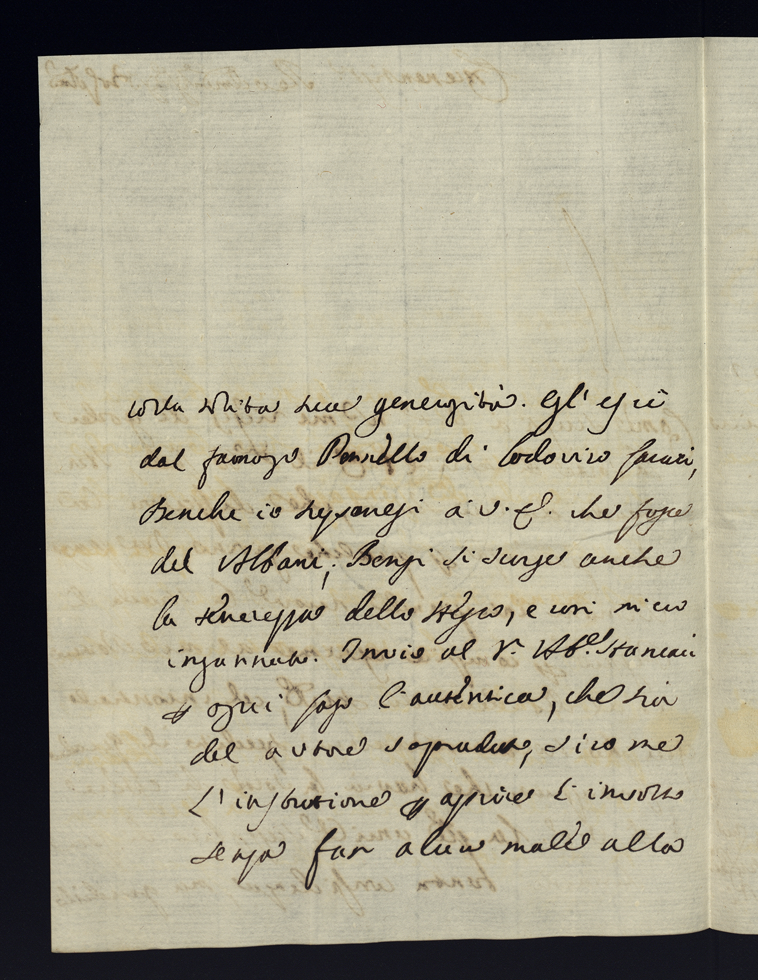 colla solita sua generosità. Egl' è
dal famoso Pennello di Lodovico
Benche io supponessi a V. E. che fosse
del Albani; Bensi si scorge anche
la tenerezza dello stesso, e cosi mi ero
ingannato. Invio al Sr. Abe.
ogni caso l'autentica, che sia
del autore sopradetto, sicome
L'instruzione aprire l'involto
senza far alcun male alla